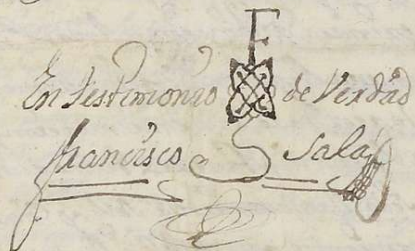 En testimonio de Verdad
Francisco Sala